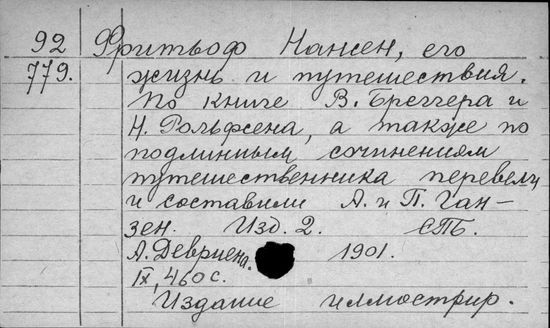 92 Фритьоф Нансен, его
779. жизнь и путешествия.
По книге В. Бреггера и
Н. Рольфсена, а также по
подлинным сочинениям
путешественника перевели
и составили А. и П. Ган-
зен. Изд. 2. СПб.
А. Девриена. 1901.
IX, 460 с.
Издание иллюстрир.